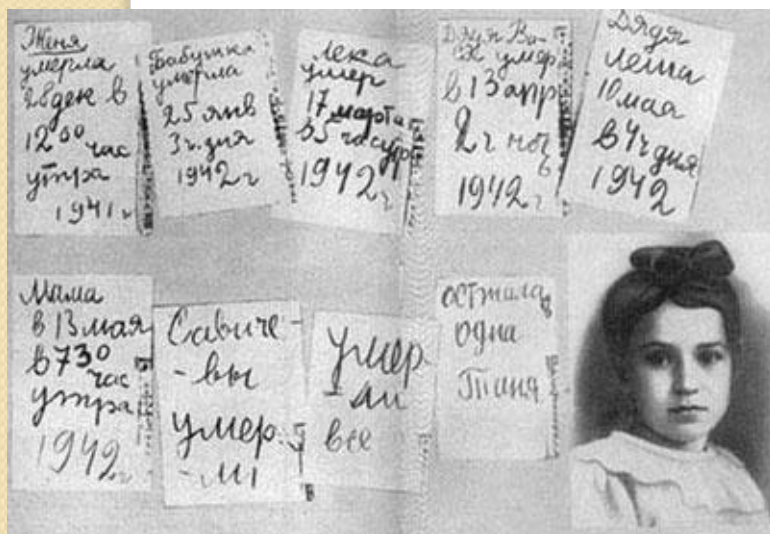 Женя
умерла
28 дек в
12 00 час
утра
1941 г
Бабушка
умерла
25 янв
3 ч. дня
1942 г
Лека
умер
17 марта
в 5 час утр
1942 г
Дядя Ва
ся умер
в 13 апр
2 ч ноч
ь
1942 г
Дядя
Леша
10 мая
в 4 ч дня
1942
Мама
в 13 мая
в 7 30
час
утра
1942 г
Савиче-
-вы
умер-
-ли
умер
-ли
все
осталась
одна
Таня